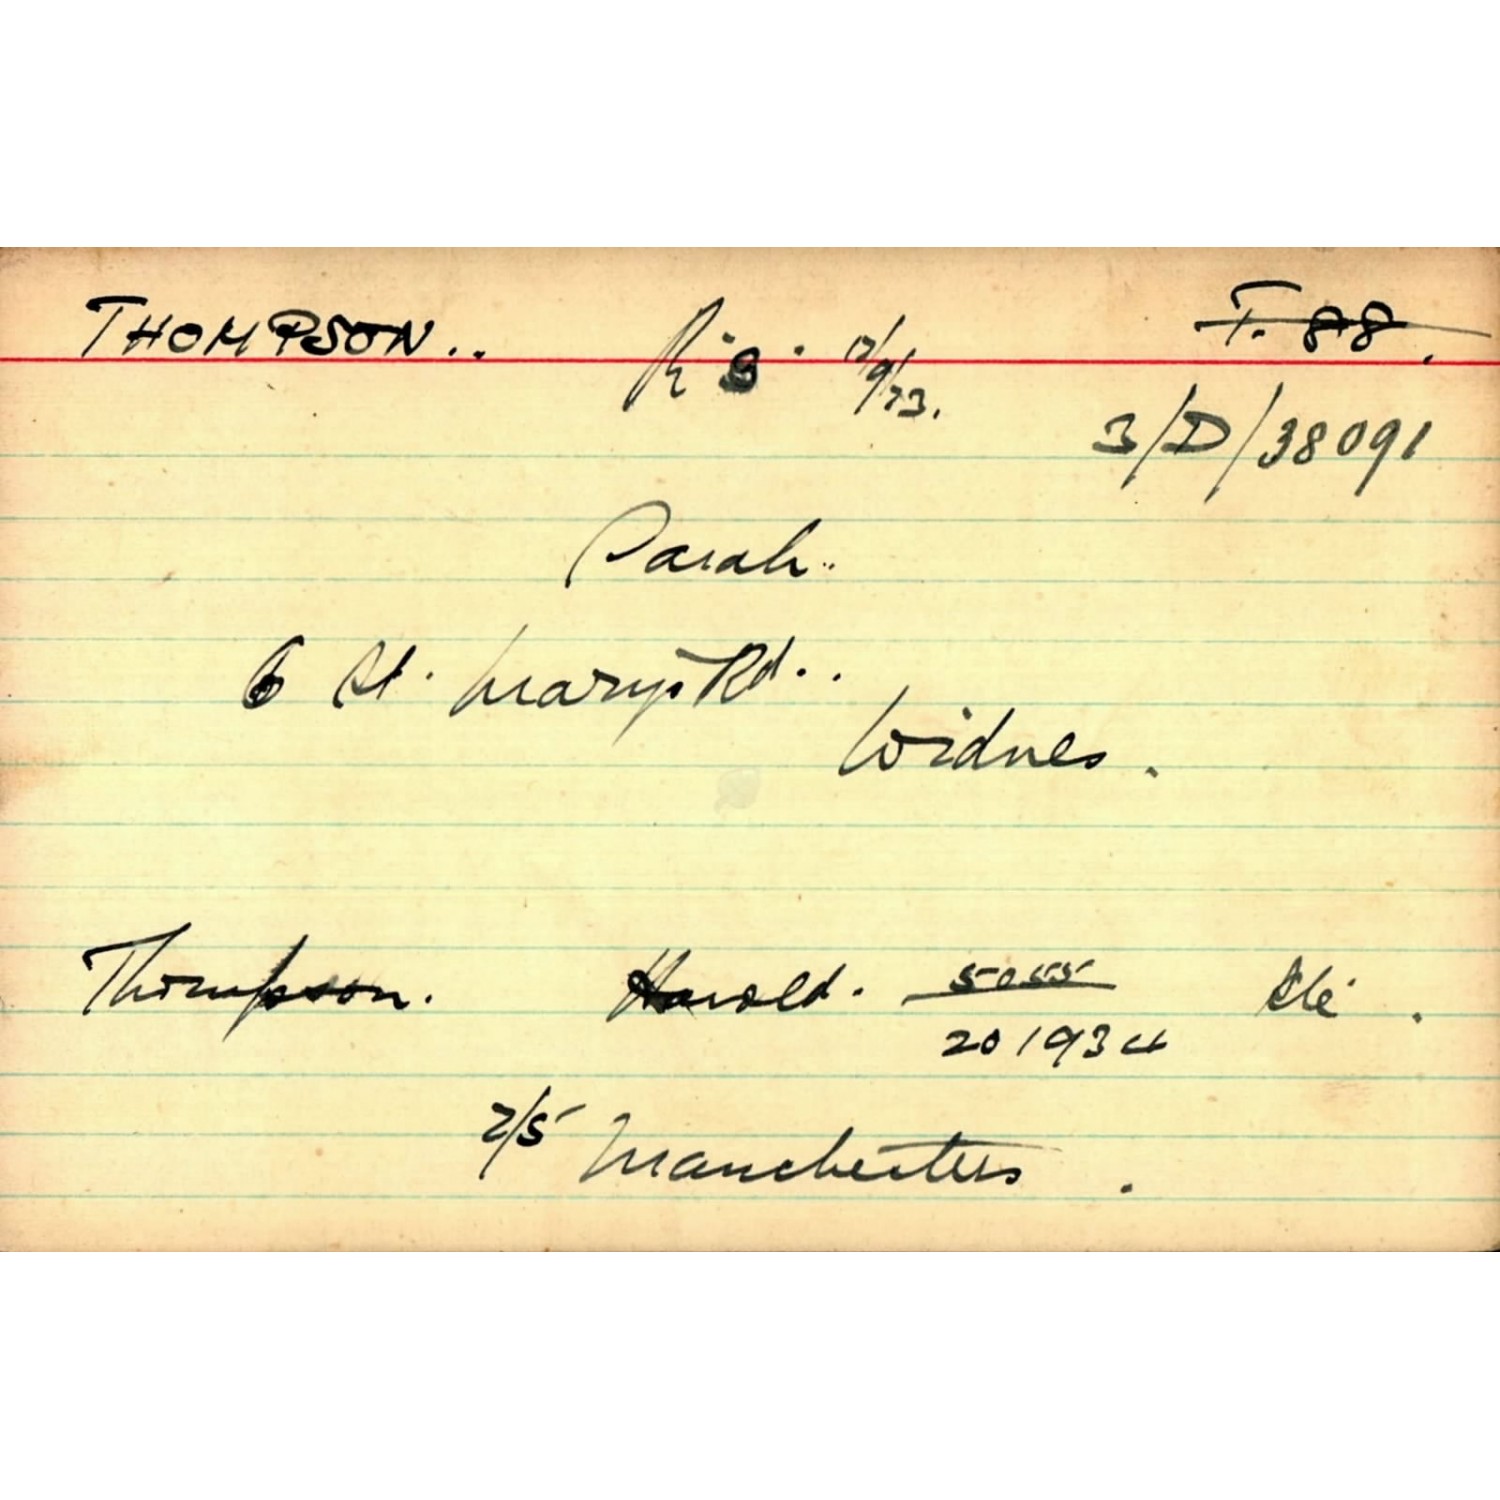 THOMPSON.. T. 88.
12/9/73.
3/D/38091
Sarah..
6 St. Mary's Rd..
Widnes.
Thompson. Harold. 5055 Pte.
201934
2/5 Manchesters.